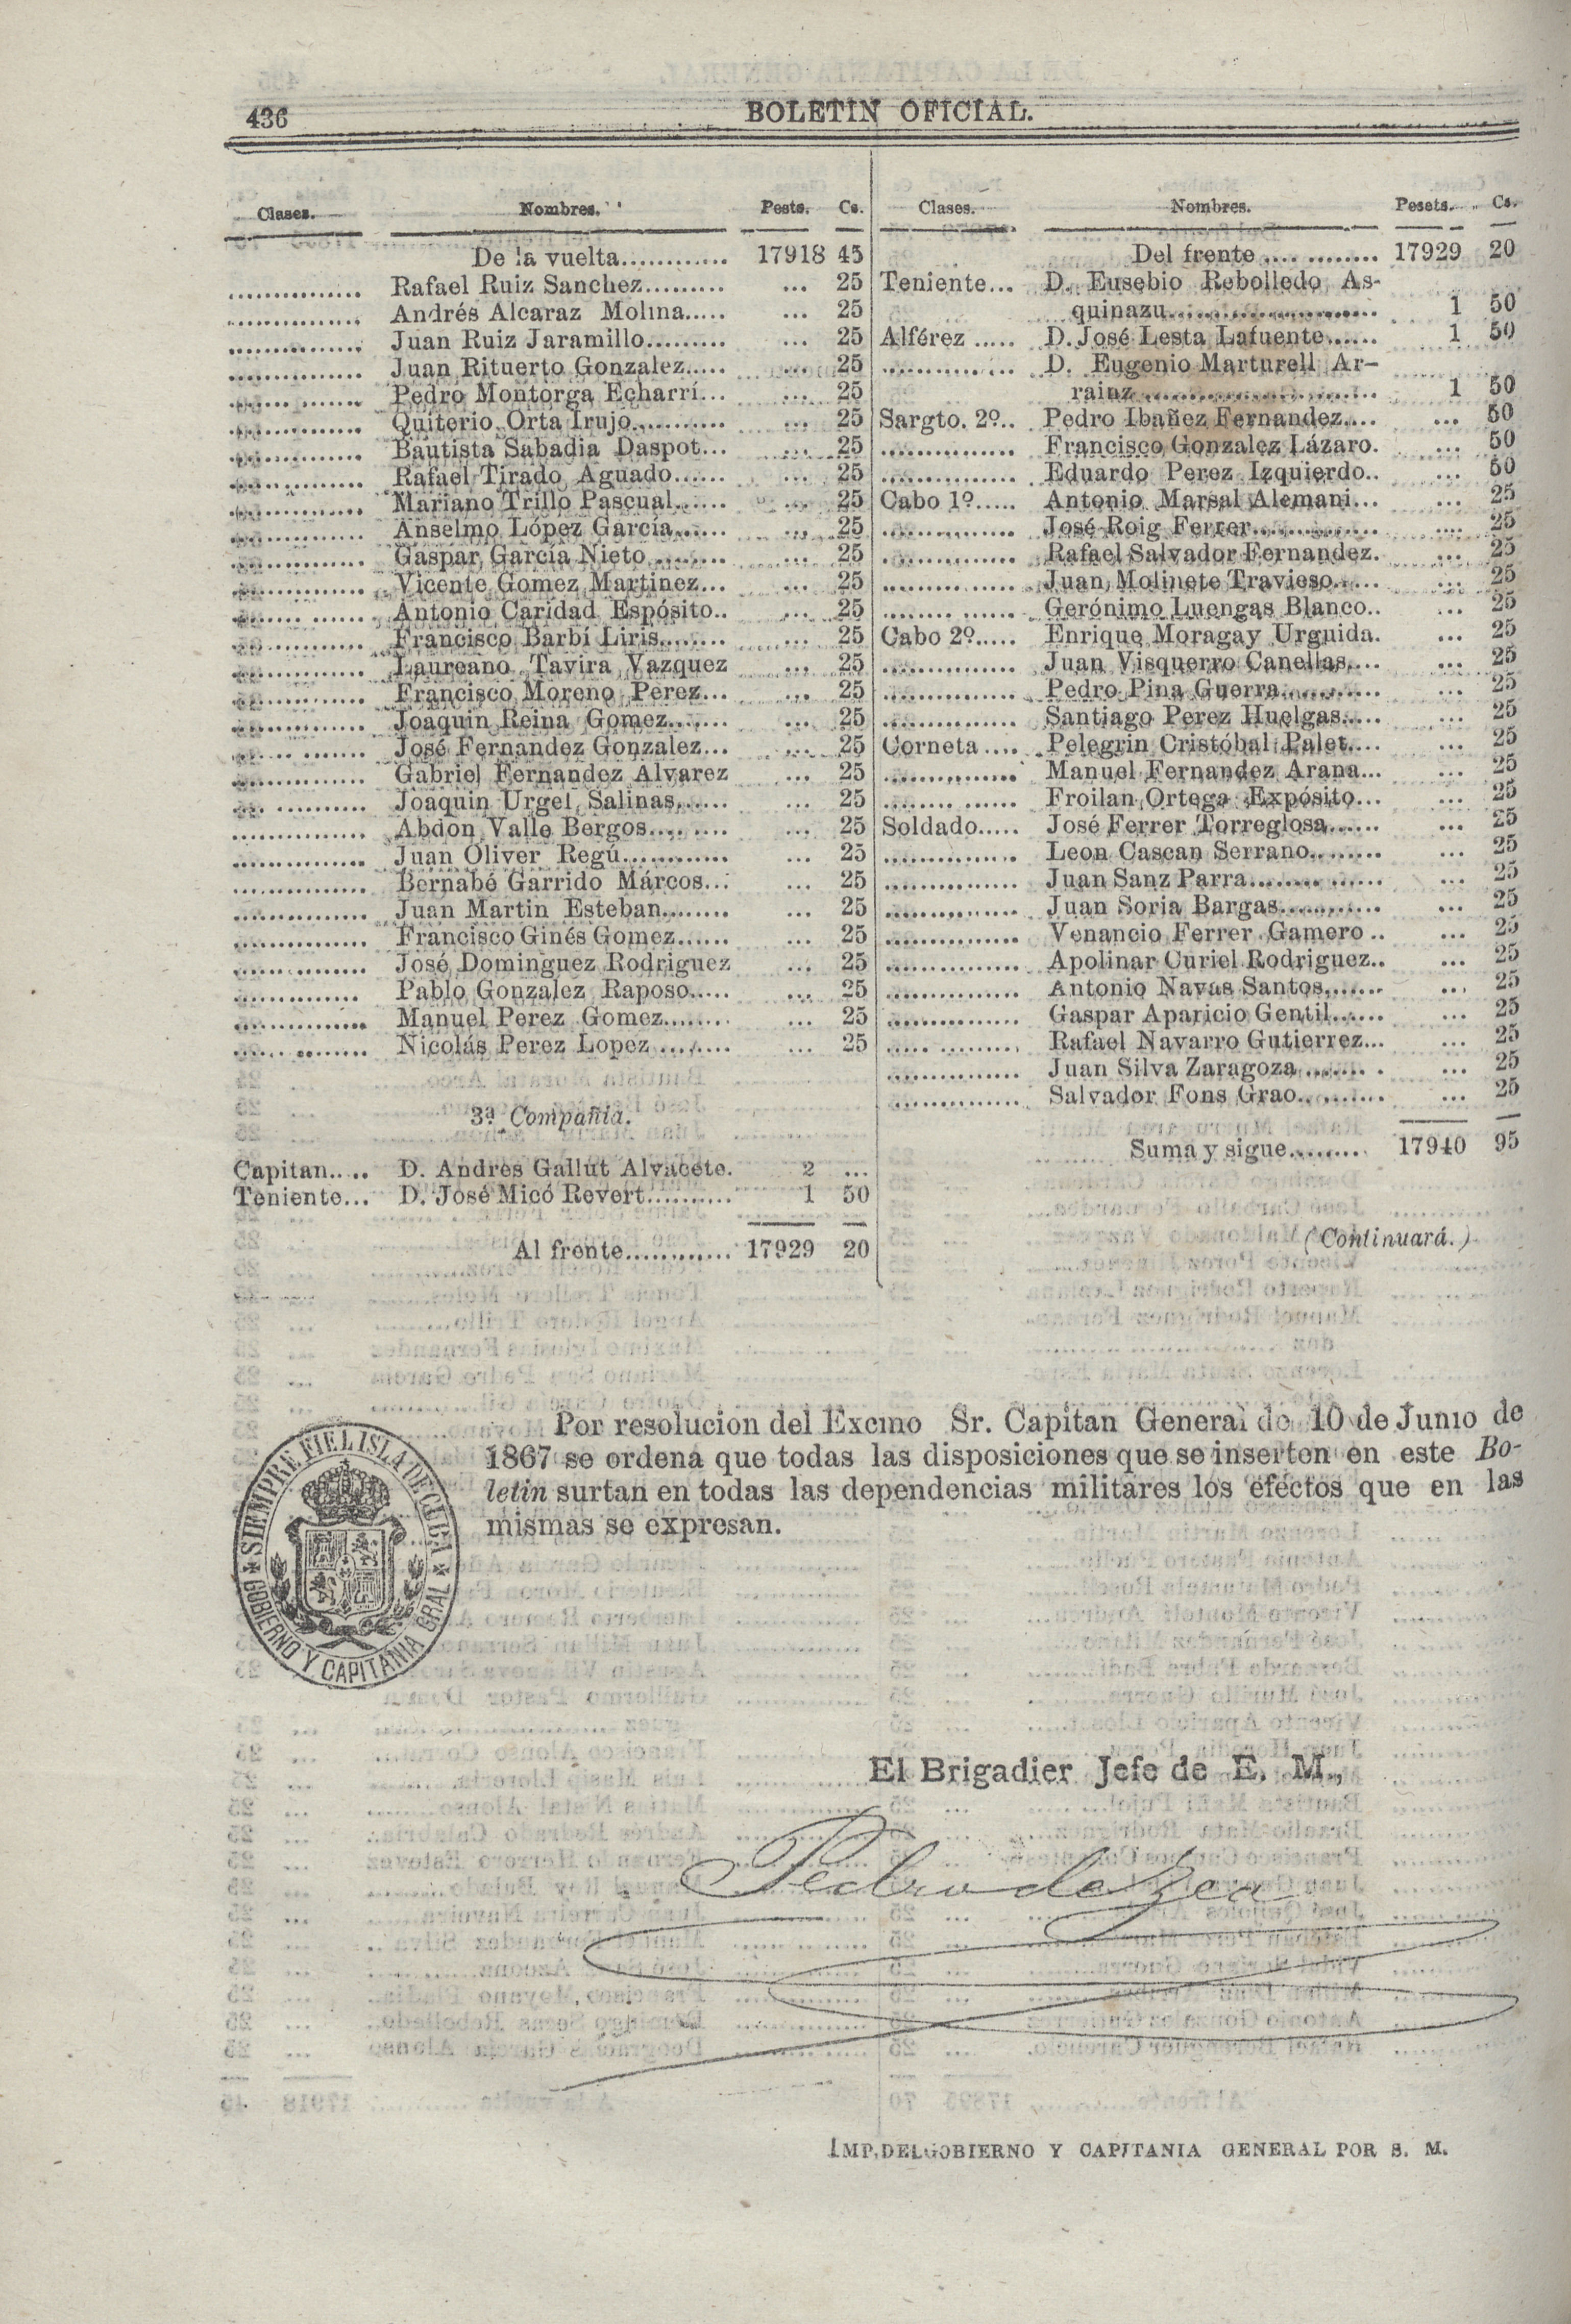 436
BOLETIN OFICIAL.
Clases. Nombres. Pests. Cs.
De la vuelta............ 17918 45
.............. Rafael Ruiz Sanchez......... ... 25
.............. Andrés Alcaraz Molina..... ... 25
.............. Juan Ruiz Jaramillo......... ... 25
.............. Juan Rituerto Gonzalez..... ... 25
.............. Pedro Montorga Echarri... ... 25
.............. Quiterio Orta Irujo........... ... 25
.............. Bautista Sabadia Daspot... ... 25
.............. Rafael Tirado Aguado...... ... 25
.............. Mariano Trillo Pascual...... ... 25
.............. Anselmo López García...... ... 25
.............. Gaspar García Nieto......... ... 25
.............. Vicente Gomez Martinez... ... 25
.............. Antonio Caridad Espósito.. ... 25
.............. Francisco Barbi Liris........ ... 25
.............. Laureano Tavira Vazquez ... 25
.............. Francisco Moreno Perez... ... 25
.............. Joaquin Reina Gomez....... ... 25
.............. José Fernandez Gonzalez... ... 25
.............. Gabriel Fernandez Alvarez ... 25
.............. Joaquin Urgel Salinas...... ... 25
.............. Abdon Valle Bergos......... ... 25
.............. Juan Oliver Regú............ ... 25
.............. Bernabé Garrido Márcos... ... 25
.............. Juan Martin Esteban........ ... 25
.............. Francisco Ginés Gomez...... ... 25
.............. José Dominguez Rodriguez ... 25
.............. Pablo Gonzalez Raposo..... ... 25
.............. Manuel Perez Gomez........ ... 25
.............. Nicolás Perez Lopez ........ ... 25
3ª Compañia.
Capitan..... D. Andres Gallut Alvacete. 2 ...
Teniente... D. José Micó Revert.......... 1 50
Al frente............ 17929 20
Clases. Nombres. Pesets. Cs.
Del frente ............ 17929 20
Teniente... D. Eusebio Rebolledo As-
quinazu........................ 1 50
Alférez ..... D. José Lesta Lafuente...... 1 50
.............. D. Eugenio Marturell Ar-
rainz........................... 1 50
Sargto. 2º.. Pedro Ibañez Fernandez.... ... 50
.............. Francisco Gonzalez Lázaro. ... 50
.............. Eduardo Perez Izquierdo.. ... 50
Cabo 1º..... Antonio Marsal Alemani... ... 25
.............. José Roig Ferrer.............. ... 25
.............. Rafael Salvador Fernandez. ... 25
.............. Juan Molinete Travieso..... ... 25
.............. Gerónimo Luengas Blanco.. ... 25
Cabo 2º..... Enrique Moragay Urguida. ... 25
.............. Juan Visquerro Canellas.... ... 25
.............. Pedro Pina Guerra........... ... 25
.............. Santiago Perez Huelgas..... ... 25
Corneta .... Pelegrin Cristóbal Palet.... ... 25
.............. Manuel Fernandez Arana... ... 25
.............. Froilan Ortega Expósito... ... 25
Soldado..... José Ferrer Torreglosa...... ... 25
.............. Leon Cascan Serrano........ ... 25
.............. Juan Sanz Parra.............. ... 25
.............. Juan Soria Bargas........... ... 25
.............. Venancio Ferrer Gamero .. ... 25
.............. Apolinar Curiel Rodriguez.. ... 25
.............. Antonio Navas Santos....... ... 25
.............. Gaspar Aparicio Gentil...... ... 25
.............. Rafael Navarro Gutierrez... ... 25
.............. Juan Silva Zaragoza......... ... 25
.............. Salvador Fons Grao.......... ... 25
Suma y sigue........ 17940 95
(Continuará.)
Por resolucion del Excmo Sr. Capitan General de 10 de Junio de
1867 se ordena que todas las disposiciones que se inserten en este Bo-
letin surtan en todas las dependencias militares los efectos que en las
mismas se expresan.
SIEMPRE FIEL ISLA DE CUBA
GOBIERNO Y CAPITANIA GRAL
El Brigadier Jefe de E. M.,
Pedro de Zea
IMP. DEL GOBIERNO Y CAPITANIA GENERAL POR S. M.